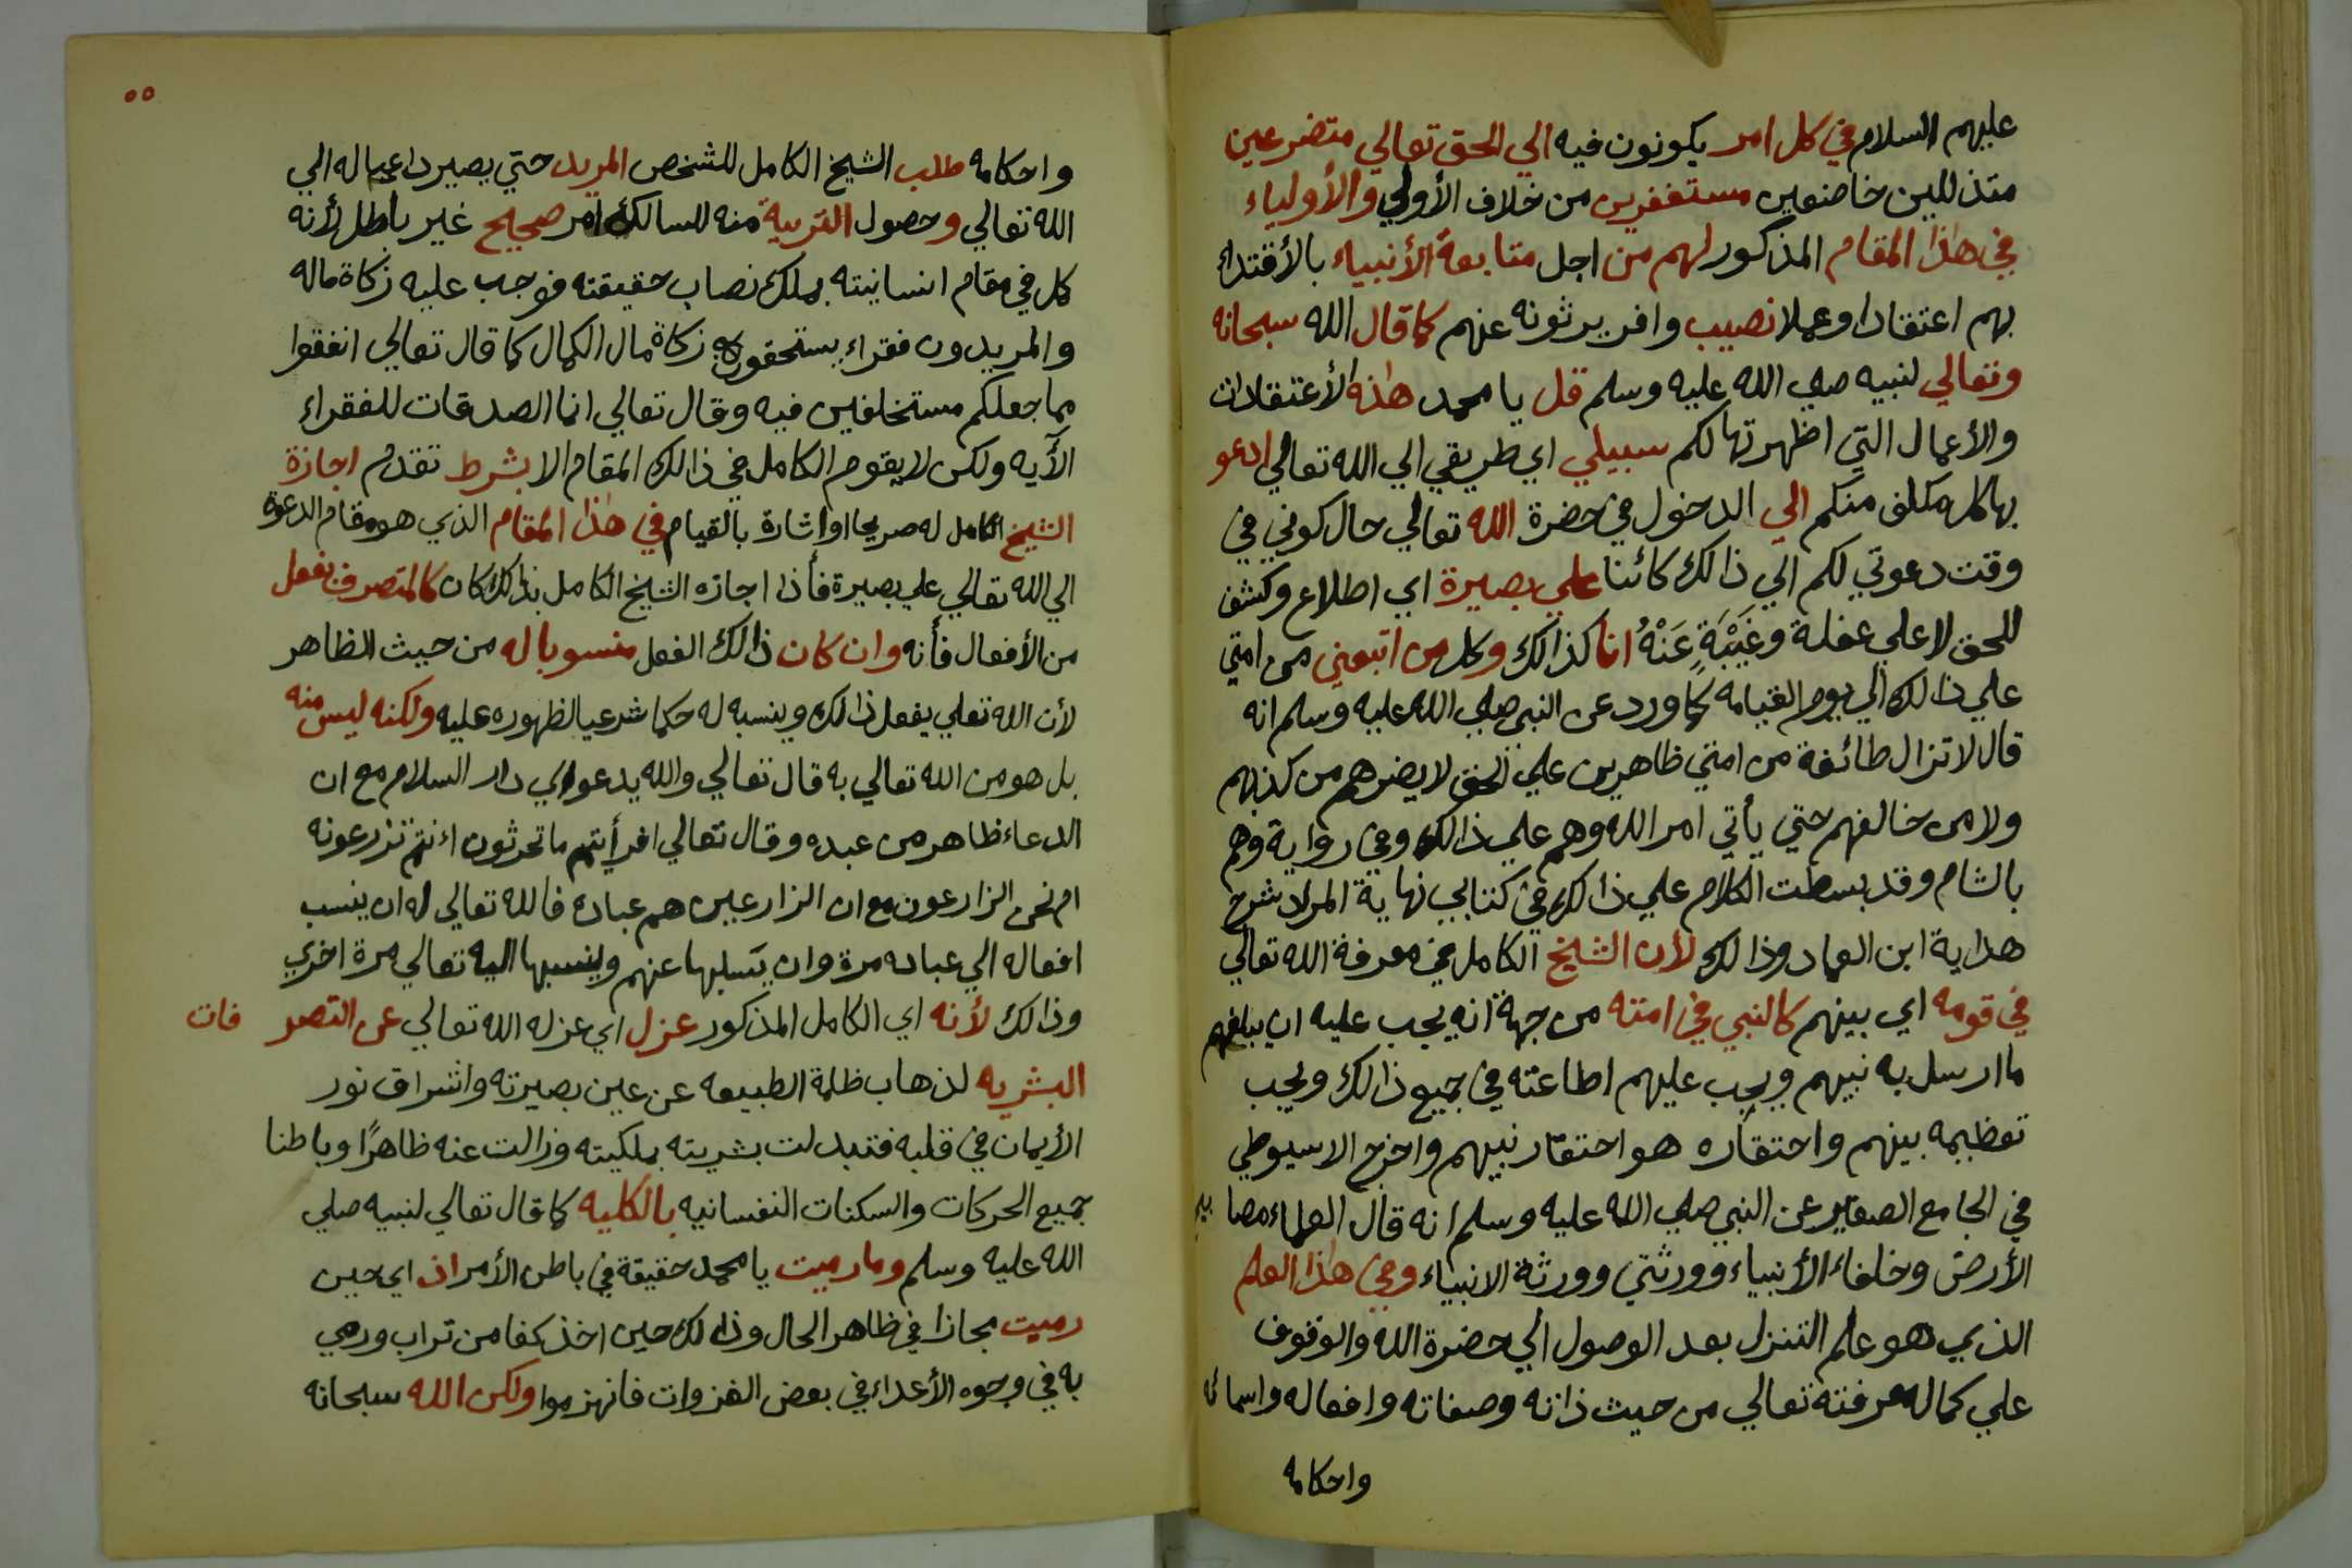 عليهم السلام في كل امر يكونون فيه الي الحق تعالي متضرعين
متذللين خاضعين مستغفرين من خلاف الأولي والأولياء
في هٰذا المقام المذكور لهم من اجل متابعة الأنبياء بالأقتداء
بهم اعتقادا وعملا نصيب وافر يرثونه عنهم كما قال الله سبحانه
وتعالي لنبيه صلي الله عليه وسلم قل يا محمد هٰذه الأعتقادات
والأعمال التي اظهرتها لكم سبيلي اي طريقي الي الله تعالي ادعو
بها كل مكلف منكم الي الدخول في حضرة الله تعالي حال كوني في
وقت دعوتي لكم الي ذالك كائنا علي بصيرة اي اطلاع وكشف
للحق لا علي غفلة وغَيْبَةٍ عَنْهُ انا كذالك وكل من اتبعني من امتي
علي ذالك الي يوم القيامه كما ورد عن النبي صلي الله عليه وسلم انه
قال لا تزال طائفة من امتي ظاهرين علي الحق لا يضرهم من كذبهم
ولا من خالفهم حتي يأتي امر الله وهم علي ذالك وفي رواية وهم
بالشام وقد بسطت الكلام علي ذالك في كتابي نهاية المراد شرح
هداية ابن العماد وذالك لأن الشيخ الكامل في معرفة الله تعالي
في قومه اي بينهم كالنبي في امته من جهة انه يجب عليه ان يبلغهم
ما ارسل به نبيهم ويجب عليهم اطاعته في جميع ذالك ويجب
تعظيمه بينهم واحتقاره هو احتقار نبيهم واخرج الاسيوطي
في الجامع الصغير عن النبي صلي الله عليه وسلم انه قال العلماء مصابيح
الأرض وخلفاء الأنبياء وورثتي وورثة الانبياء وفي هٰذا العلم
الذي هو علم التنزل بعد الوصول الي حضرة الله والوقوف
علي كمال معرفته تعالي من حيث ذاته وصفاته وافعاله واسمائه
واحكامه
٥٥
واحكامه طلب الشيخ الكامل للشخص المريد حتي يصير داعيا له الي
الله تعالي وحصول التربية منه للسالك امر صحيح غير باطل لأنه
كمل في مقام انسانيته بملك نصاب حقيقته فوجب عليه زكاة ماله
والمريدون فقراء يستحقون زكاة مال الكمال كما قال تعالي انفقوا
مما جعلكم مستخلفين فيه وقال تعالي انما الصدقات للفقراء
الآيه ولكن لا يقوم الكامل في ذالك المقام الا بشرط تقدم اجازة
الشيخ الكامل له صريحا او اشارة بالقيام في هٰذا المقام الذي هو مقام الدعوة
الي الله تعالي علي بصيرة فأذا اجازه الشيخ الكامل بذالك كان كالمتصرف بفعل
من الأفعال فأنه وان كان ذالك الفعل منسوبا له من حيث الظاهر
لأن الله تعلي يفعل ذالك وينسبه له حكما شرعيا لظهوره عليه ولكنه ليس منه
بل هو من الله تعالي به قال تعالي والله يدعو الي دار السلام مع ان
الدعاء ظاهر من عبده وقال تعالي افرأيتم ما تحرثون اءنتم تزرعونه
ام نحن الزارعون مع ان الزارعين هم عباده فالله تعالي له ان ينسب
افعاله الي عباده مرة وان يسلبها عنهم وينسبها اليه تعالي مرة اخري
وذالك لأنه اي الكامل المذكور عزل اي عزله الله تعالي عن التصرفات
البشريه لذهاب ظلمة الطبيعه عن عين بصيرته واشراق نور
الأيمان في قلبه فتبدلت بشريته بملكيته وزالت عنه ظاهرًا وباطنا
جميع الحركات والسكنات النفسانيه بالكليه كما قال تعالي لنبيه صلي
الله عليه وسلم وما رميت يا محمد حقيقة في باطن الأمر اذ اي حين
رميت مجازا في ظاهر الحال وذالك حين اخذ كفا من تراب ورمي
به في وجوه الأعداء في بعض الغزوات فانهزموا ولكن الله سبحانه